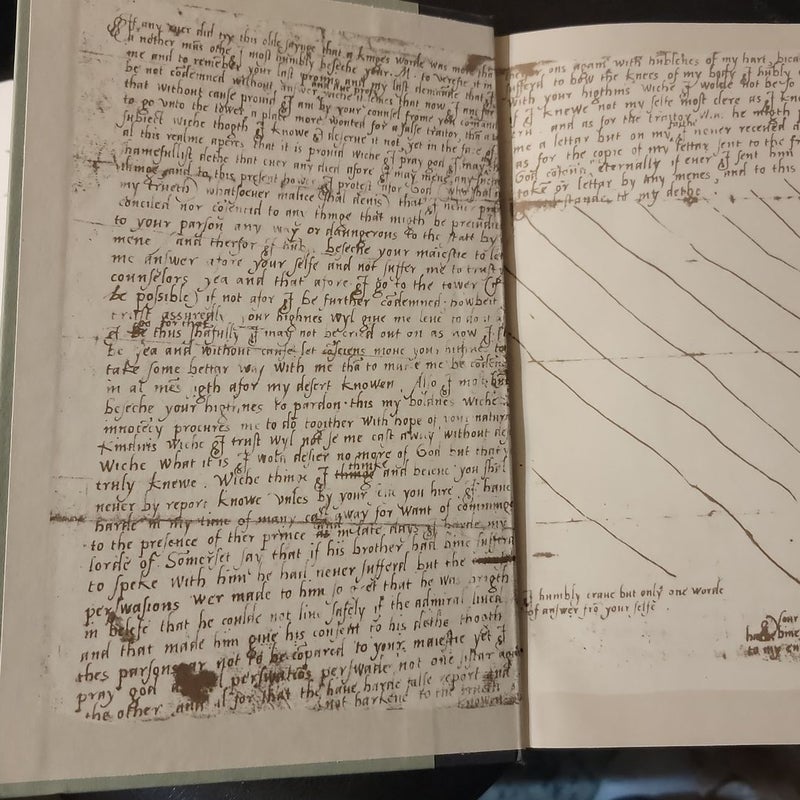 If any ever did try this olde saynge that a kinges worde was more tha
a nother mās othe I most humbly beseche your M. to verefie it in
me and to remēber your last promis and my last demaunde that
be not condemned without answer wiche it semes that now I am for
that without cause provid I am by your counsel frome you commanded
to go unto the tower a place more wonted for a false traitor, thā a
subject wiche thogth I knowe I deserve it not yet in the face of
al this realme aperes that it is provid wiche I pray god I may
shamefullist dethe that ever any died afore I may mene any suche
thinge and to this present hower I protest afor God
my trueth whatsoever malice shal devis) that I never
conciled nor cōsentid to any thinge that migth be prejudic
to your parson any way or daungerous to the stat by
mene and therfor I hūbly beseche your majestie to let
me answer afore your selfe and not suffer me to trust y
counselors yea and that afore I go to the tower (if
be possible) if not afor I be further cōdemned howbeit
trust assuredly your highnes wyl give me leve to do it a
I go for that thus shamfully I may not be cried out on as now I s
be yea and without cause let cōsciens move your highnes to
take some bettar way with me thā to make me be cōdem
in al mēs sigth afor my desert knowen. Also I most hū
beseche your higthnes to pardon this my boldnes wiche
innocēcy procures me to do togither with hope of your natura
kindnis wiche I trust wyl not se me cast away without des
wiche what it is I wold desier no more of God but that y
truly knewe. Wiche thinge I thinke and beleve you shal
never by report knowe unles by your selfe you hire. I have
harde in my time of many cast away for want of comminge
to the presence of ther prince and in late days I harde my
lorde of Somerset say that if his brother had bine suffer
to speke with him he had never sufferd but the
perswasions wer made to him so gret that he was brogth
in belefe that he coulde not live safely if the admiral lived
and that made him give his consent to his dethe thogth
thes parsons ar not to be cōpared to your majestie yet I
pray god perswatiōs perswade not one sistar agai
the other and al for that the have harde false report and
not harkene to the trueth knowen
ons again with hūblenes of my hart, bicau
sufferd to bow the knees of my body I hūbly
with your higthnis wiche I wolde not be so
I knewe not my selfe most clere as I kno
and as for the traitor Wiat he migth p
me a lettar but on my faithe I never receved a
as for the copie of my lettar sent to the fre
God cōfound eternally if ever I sent him
tokē or lettar by any menes, and to this
stande to my dethe.
I humbly crave but only one worde
of answer frō your selfe.
your
have bine
to my en